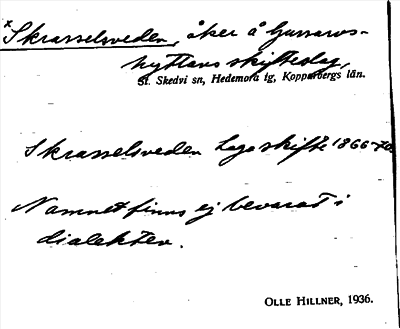 x Skrasselsveden, åker å Gussarvs-
hyttans skifteslag,
St. Skedvi sn, Hedemora tg, Kopparbergs län.
Skrasselsveden Laga skifte 1866-70
Namnet finns ej bevarat i
dialekten.
OLLE HILLNER, 1936.